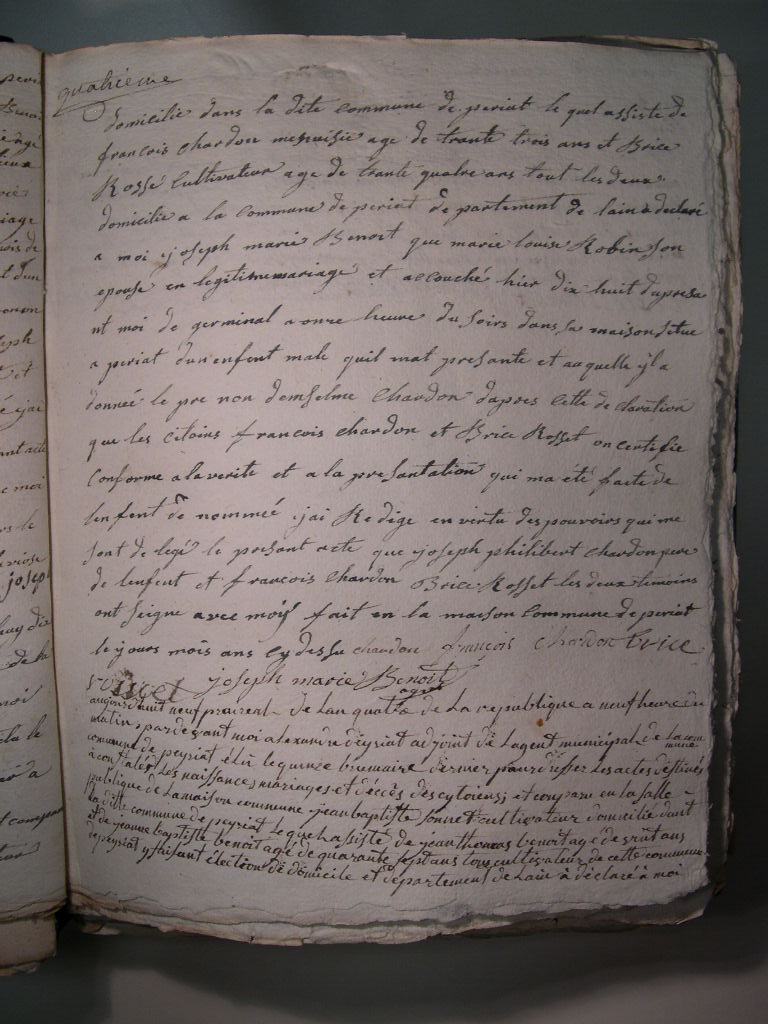 quatrieme
domicilié dans la dite commune de periat le quel assiste de
francois chardon menuisie age de trante trois ans et Brice
Rossé Cultivateur age de trante quatre ans tout les deux
domicilie a la commune de periat de partement de lain a declaré
a moi joseph marie Benoit que marie louise Robin son
epouse en legitime mariage et accouché hier dix huit du presa
nt moi de germinal a onze heure du soirs dans sa maison situe
a periat dun enfent male quil mat presante et auquelle yla
donneé le pre non damselme Chardon dapres cette declaration
que les citoins francois chardon et Brice Rosset on certifie
Conforme a la verite et a la presantation qui ma eté faite de
lenfent de nommeé jai Redige en vertu des pouvoirs qui me
sont de legé le presant acte que joseph philibert chardon pere
de lenfent et francois Chardon Brice Rosset les deux temoins
ont seigne avec mois fait en la maison Commune de periat
le jours mois ans cy dessu chardon françois chardon brice
joseph marie Benoit
agent
aujourdhuit neuf prereal de lan quatre de la republique a neuf heure du
matin, pardevant moi alexandre deyriat adjoint de lagent municipal de la com
mune
commune de peyriat élu le quinze brumaire dernier pour dresser les actes destinés
à constater les naissances, mariages et décès des cytoiens; et comparu en la salle
publique de la maison commune jean baptiste sonnet cultivateur domicilié dant
la ditte commune de peyriat lequel assisté de jean thomas benoit agé de ans
et de jeanne baptiste benoit agé de quarante sept ans tous cultivateur de cette commune
de peyriat y faisant élection de domicile et département de lain à déclaré à moi